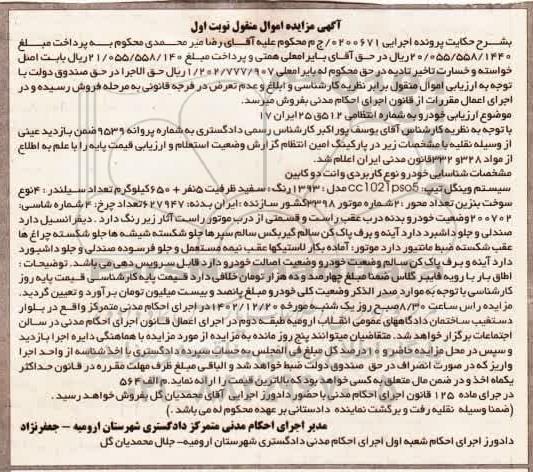 آگهی مزایده اموال منقول نوبت اول
بشرح حکایت پرونده اجرایی ۰۲۰۰۶۷۱/ج م محکوم علیه آقای رضا میر محمدی محکوم به پرداخت مبلغ
۲۰/۰۵۵/۵۵۸/۱۴۴۰ریال در حق آقای بایرامعلی همتی و پرداخت مبلغ ۲۱/۰۵۵/۵۵۸/۱۴۰ریال بابت اصل
خواسته و خسارت تاخیر تادیه در حق محکوم له بایرامعلی ۱/۲۰۲/۷۷۷/۹۰۷ریال حق الاجرا در حق صندوق دولت با
توجه به ارزیابی اموال منقول برابر نظریه کارشناسی و ابلاغ و عدم تعرض در فرجه قانونی به مرحله فروش رسیده و در
اجرای اعمال مقررات از قانون اجرای احکام مدنی بفروش میرسد.
موضوع ارزیابی خودرو به شماره انتظامی ۵۱۲ق۲۵ ایران ۱۷
با توجه به نظریه کارشناس آقای یوسف پوراکبر کارشناس رسمی دادگستری به شماره پروانه ۹۵۳۹ضمن بازدید عینی
از وسیله نقلیه با مشخصات زیر در پارکینگ امین انتظام گزارش وضعیت استعلام و ارزیابی قیمت پایه را با علم به اطلاع
از مواد ۳۲۸و ۳۳۲قانون مدنی ایران اعلام شد.
مشخصات شناسایی خودرو نوع کاربردی وانت دو کابین
سیستم وینگل تیپ: cc1021pso5 مدل : ۱۳۹۳رنگ : سفید ظرفیت ۵نفر + ۶۵۰کیلوگرم تعداد سیلندر : ۴نوع
سوخت بنزین تعداد محور :۲شماره موتور ۳۳۹۸کشور سازنده : ایران بدنه: ۶۲۷۹۴۷تعداد چرخ: ۴ شماره شاسی:
۲۰۰۷۰۲وضعیت خودرو بدنه درب عقب راست و قسمتی از درب موتور راست آثار زیر رنگ دارد . دیفرانسیل دارد
صندلی و جلو داشبرد دارد آینه و برف پاک کن سالم گیربکس سالم سپرها جلو شکسته شیشه ها جلو شکسته چراغ ها
عقب شکسته ضبط مانتیور دارد موتور: آماده بکار لاستیکها عقب نیمه مستعمل و جلو فرسوده صندلی و جلو داشبورد
دارد آینه و برف پاک کن سالم وضعیت خودرو وضعیت اصالت خودرو دارد قابل سرویس دهی می باشد . توضیحات :
اطاق بار با رویه فایبر گلاس ضمنا مبلغ چهارصد و ده هزار تومان خلافی دارد قیمت پایه کارشناسی قیمت پایه روز
کارشناسی با توجه به موارد صدر الذکر وضعیت کلی خودرو مبلغ پانصد و بیست میلیون تومان برآورد و تعیین گردید.
مزایده راس ساعت ۸/۳۰صبح روز یک شنبه مورخه ۱۴۰۲/۱۲/۲۰در اجرای احکام مدنی متمرکز واقع در بلوار
دستغیب ساختمان دادگاههای عمومی انقلاب ارومیه طبقه دوم در اجرای اعمال قانون اجرای احکام مدنی در سالن
اجتماعات برگزار خواهد شد. متقاضیان میتوانند پنج روز مانده به مزایده از مورد مزایده با هماهنگی دایره اجرا بازدید
و سپس در محل مزایده حاضر و ده درصد کل مبلغ فی المجلس به حساب سپرده دادگستری با اخذ شناسه از واحد اجرا
واریز که در صورت انصراف در حق صندوق دولت ضبط خواهد شد و الباقی مبلغ ظرف مهلت مقرره در قانون حداکثر
یکماه اخذ و در ضمن مال متعلق به کسی خواهد بود که بالاترین قیمت را ارائه نماید. م الف ۵۶۴
در اجرای ماده ۱۲۵ قانون اجرای احکام مدنی با حضور دادورز اجرای احکام آقای محمدیان گل بفروش خواهد رسید .
(ضمنا وسیله نقلیه رفت و برگشت نماینده دادستانی بر عهده محکوم له می باشد .)
مدیر اجرای احکام مدنی متمرکز دادگستری شهرستان ارومیه – جعفرنژاد
دادورز اجرای احکام شعبه اول اجرای احکام مدنی دادگستری شهرستان ارومیه- جلال محمدیان گل